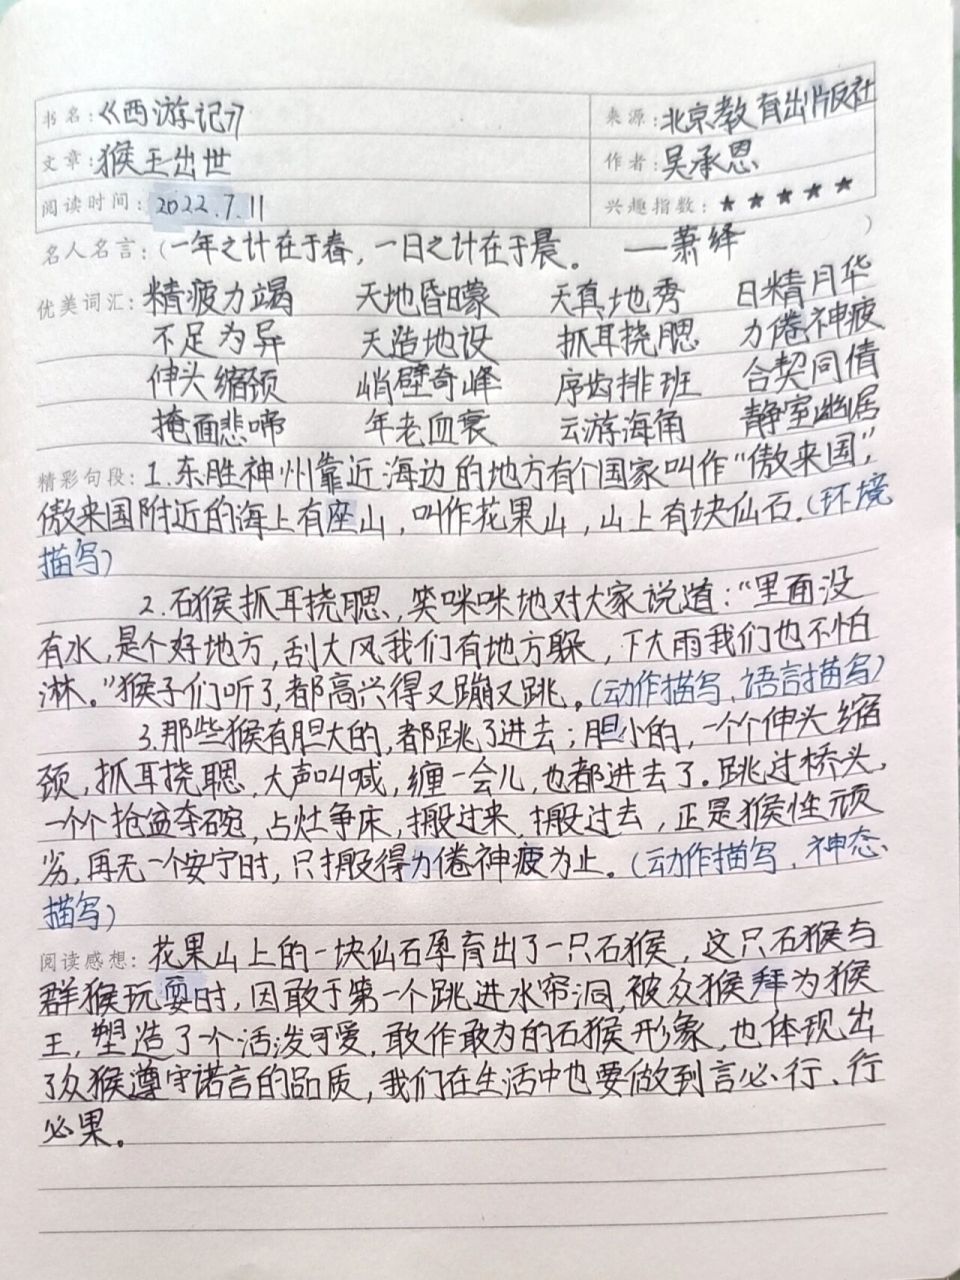 书名:《西游记》 来源:北京教育出版社
文章:猴王出世 作者:吴承恩
阅读时间:2022.7.11 兴趣指数:★★★★★
名人名言:(一年之计在于春,一日之计在于晨。 ——萧绎 )
优美词汇:精疲力竭 天地昏曚 天真地秀 日精月华
不足为异 天造地设 抓耳挠腮 力倦神疲
伸头缩颈 峭壁奇峰 序齿排班 合契同情
掩面悲啼 年老血衰 云游海角 静室幽居
精彩句段:1.东胜神州靠近海边的地方有个国家叫作“傲来国”,
傲来国附近的海上有座山,叫作花果山,山上有块仙石.(环境
描写)
2.石猴抓耳挠腮、笑咪咪地对大家说道:“里面没
有水,是个好地方,刮大风我们有地方躲,下大雨我们也不怕
淋。”猴子们听了,都高兴得又蹦又跳。(动作描写、语言描写)
3.那些猴有胆大的,都跳了进去;胆小的,一个个伸头缩
颈,抓耳挠聰,大声叫喊,缠一会儿,也都进去了.跳过桥头,
一个个抢盆夺碗,占灶争床,搬过来,搬过去,正是猴性顽
劣,再无一个安宁时,只搬得力倦神疲为止。(动作描写、神态
描写)
阅读感想:花果山上的一块仙石孕育出了一只石猴,这只石猴与
群猴玩耍时,因敢于第一个跳进水帘洞,被众猴拜为猴
王,塑造了个活泼可爱,敢作敢为的石猴形象,也体现出
了众猴遵守诺言的品质,我们在生活中也要做到言必行、行
必果。